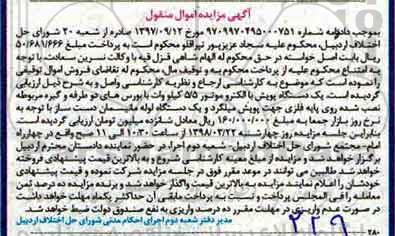 آگهی مزایده اموال منقول
بموجب دادنامه شماره ۹۷۰۹۹۷۰۴۹۵۰۰۰۷۵۱ مورخ ۱۳۹۷/۰۹/۱۲ صادره از شعبه ۲۰ شورای حل
اختلاف اردبیل، محکوم علیه سجاد عزیزپور نیراقلو محکوم است به پرداخت مبلغ ۵۰/۶۸۱/۶۶۶
ریال بابت اصل خواسته در حق محکوم له الهام شاهی قنزل قیه با وکالت نسرین سعادت، با توجه
به امتناع محکوم علیه از پرداخت محکوم به و توقیف مال، محکوم له تقاضای فروش اموال توقیفی
را نموده است که موضوع به کارشناسی ارجاع و نظریه کارشناسی واصل و به شرح ذیل ارزیابی
گردیده است یک دستگاه پویش با الکترو موتور ۵/۵ کیلو وات با بورس های دو طرفه و گیره مربوطه
نصب شده روی پایه فلزی جهت پویش میلگرد و یک دستگاه لوله مانیسمان دست ساز با توجه به
نرخ روز بازار جمعا به مبلغ ۱۶۰/۰۰۰/۰۰۰ ریال معادل شانزده میلیون تومان ارزیابی گردیده است.
بنابراین جلسه مزایده روز چهارشنبه ۱۳۹۸/۰۳/۲۲ از ساعت ۱۰:۳۰ الی ۱۱ صبح واقع در چهارراه
امام- مجتمع شورای حل اختلاف اردبیل- شعبه دوم اجرا، در حضور نماینده دادستان محترم اردبیل
برگزار خواهد شد و مزایده از مبلغ معینه کارشناسی شروع و به بالاترین قیمت پیشنهادی فروخته
خواهد شد طالبین می توانند در موعد مقرر فوق در جلسه مزایده شرکت نموده و قیمت پیشنهادی
خودشان را اعلام نمایند مزایده به بالاترین قیمت واگذار خواهد شد و برنده مزایده ده درصد ثمن
معامله را فی المجلس پرداخت و نسبت به پرداخت مابقی آن حداکثر یکماه مهلت خواهد داشت
در صورت عدم واریزی در مهلت مقرر ده درصد واریزی به نفع صندوق دولت ضبط خواهد شد.
مدیر دفتر شعبه دوم اجرای احکام مدنی شورای حل اختلاف اردبیل
۲۲۶۹
۲۸۰